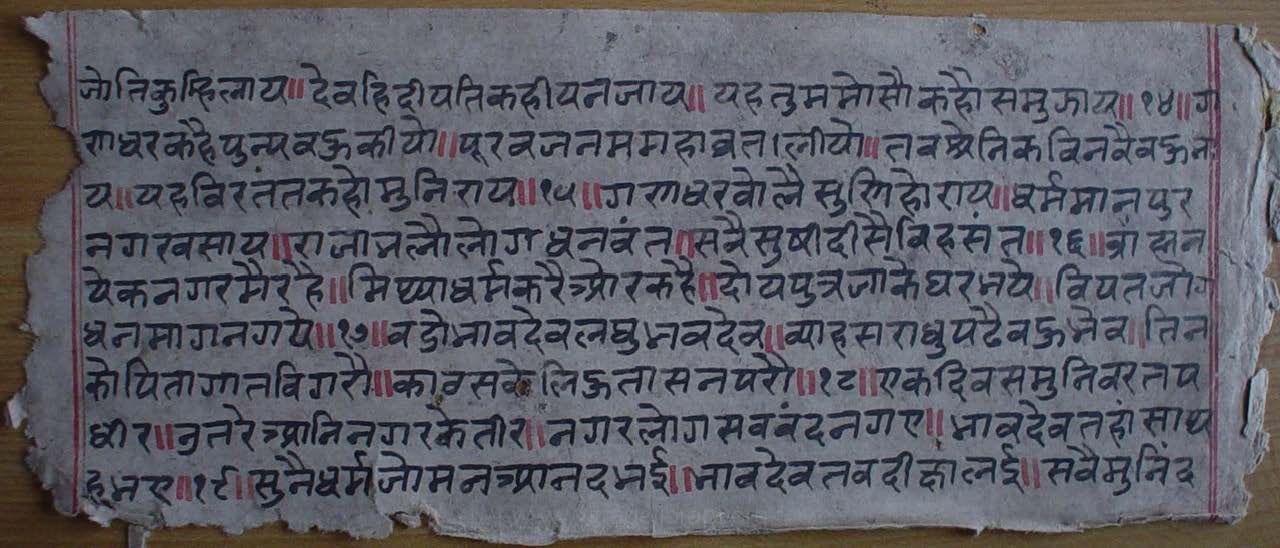 जोतिकुम्हिलाय॥ देवहि दीपति कही य न जाय॥ यह तुम मोसौ कहौ समुझाय॥१४॥ ग
णधर कहै पुन्य वऊ कीयो॥ पूरव जनम महाव्रत लीयो॥ तव श्रेनिक विनवै वऊ न
य॥ यह विरतंत कहो मुनिराय॥१५॥ गणधर वोलै सुणि हो राय॥ धर्ममानपुर
नगर वसाय॥ राजा भलौ लोग धनवंत॥ सवै सुषी दीसै विहसंत॥१६॥ व्रांह्मन
येक नगर मै रहै॥ मिथ्या धर्म करै और कहै॥ दोय पुत्र जाके घर भये॥ विपत जोग
धन मागन गये॥१७॥ वडो भावदेव लघु भवदेव॥ व्याह सराधु पढै वऊ भेव॥ तिन
को पिता गात विगरौ॥ काव सके लि ऊतासन परौ॥१८॥ एक दिवस मुनिवर तप
धीर॥ उतरे आनि नगर के तीर॥ नगर लोग सव वंदन गए॥ भावदेव तहां साथ
ह भए॥१९॥ सुनै धर्म जो मन आनद भई॥ भावदेव तव दीक्षा लई॥ सवै मुनिंद